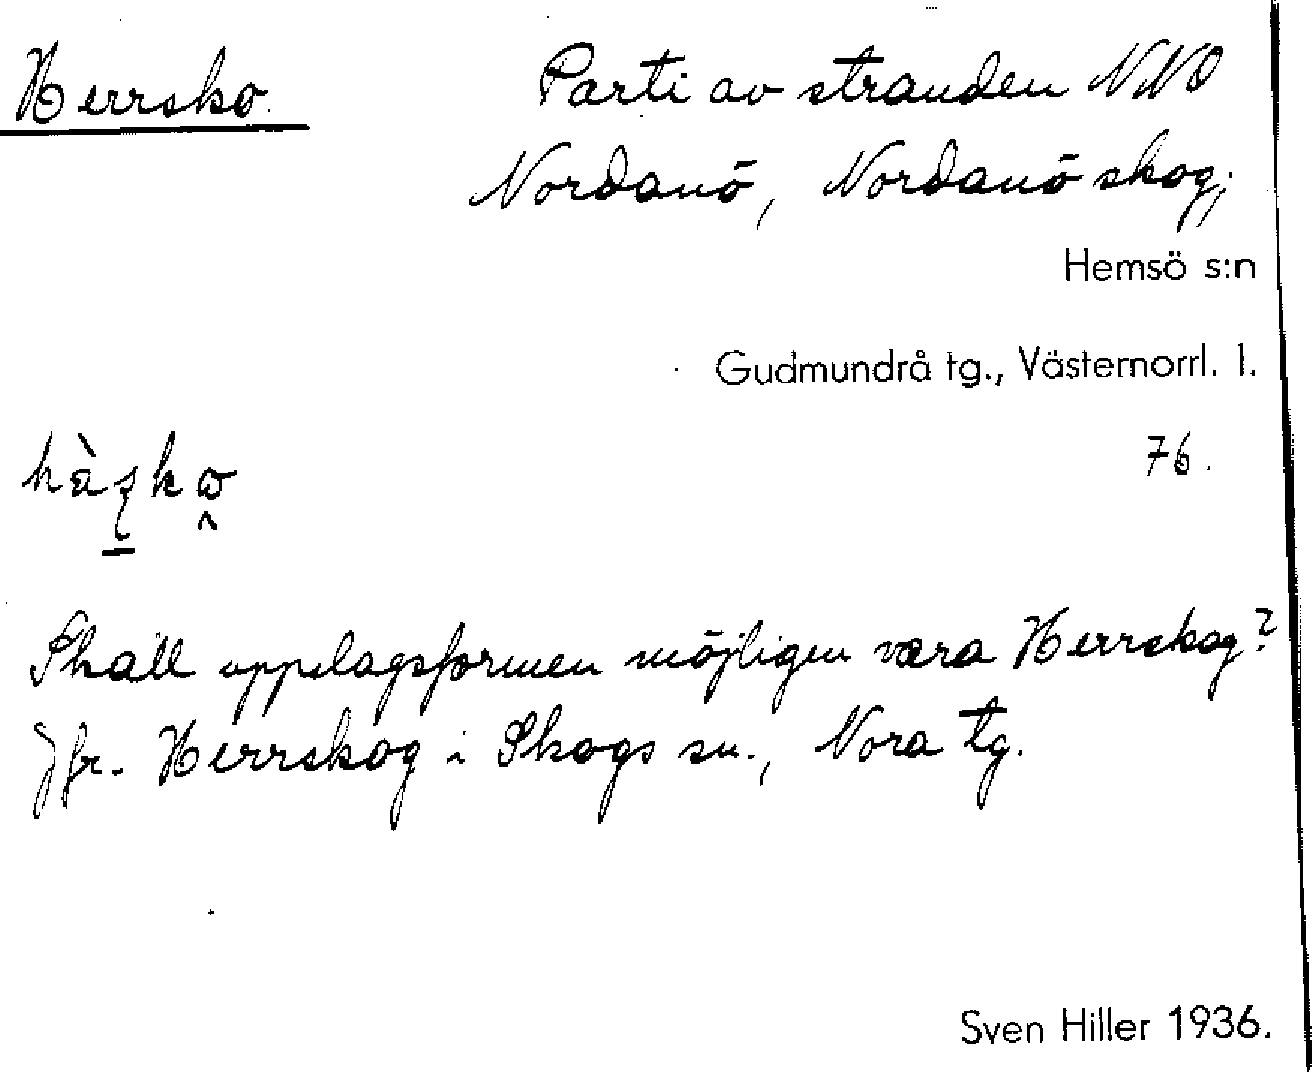 Herrsko.
Parti av stranden NNO
Nordanö, Nordanö skog;
Hemsö s:n
Gudmundrå tg., Västernorrl. l.
76.
Skall uppslagsformen möjligen vara Herrskog?
Jfr. Herrskog i Skogs sn., Nora tg.
Sven Hiller 1936.